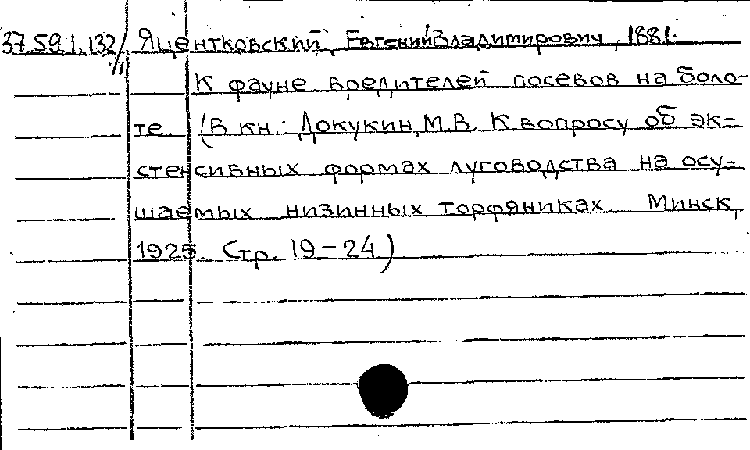 37.59.1.132/11 Яцентковский, Евгений Владимирович, 1881-
К фауне вредителей посевов на боло-
те (В кн: Докукин, М.В. К вопросу об эк-
стенсивных формах луговодства на осу-
шаемых низинных торфяниках Минск,
1925. Стр. 19-24)